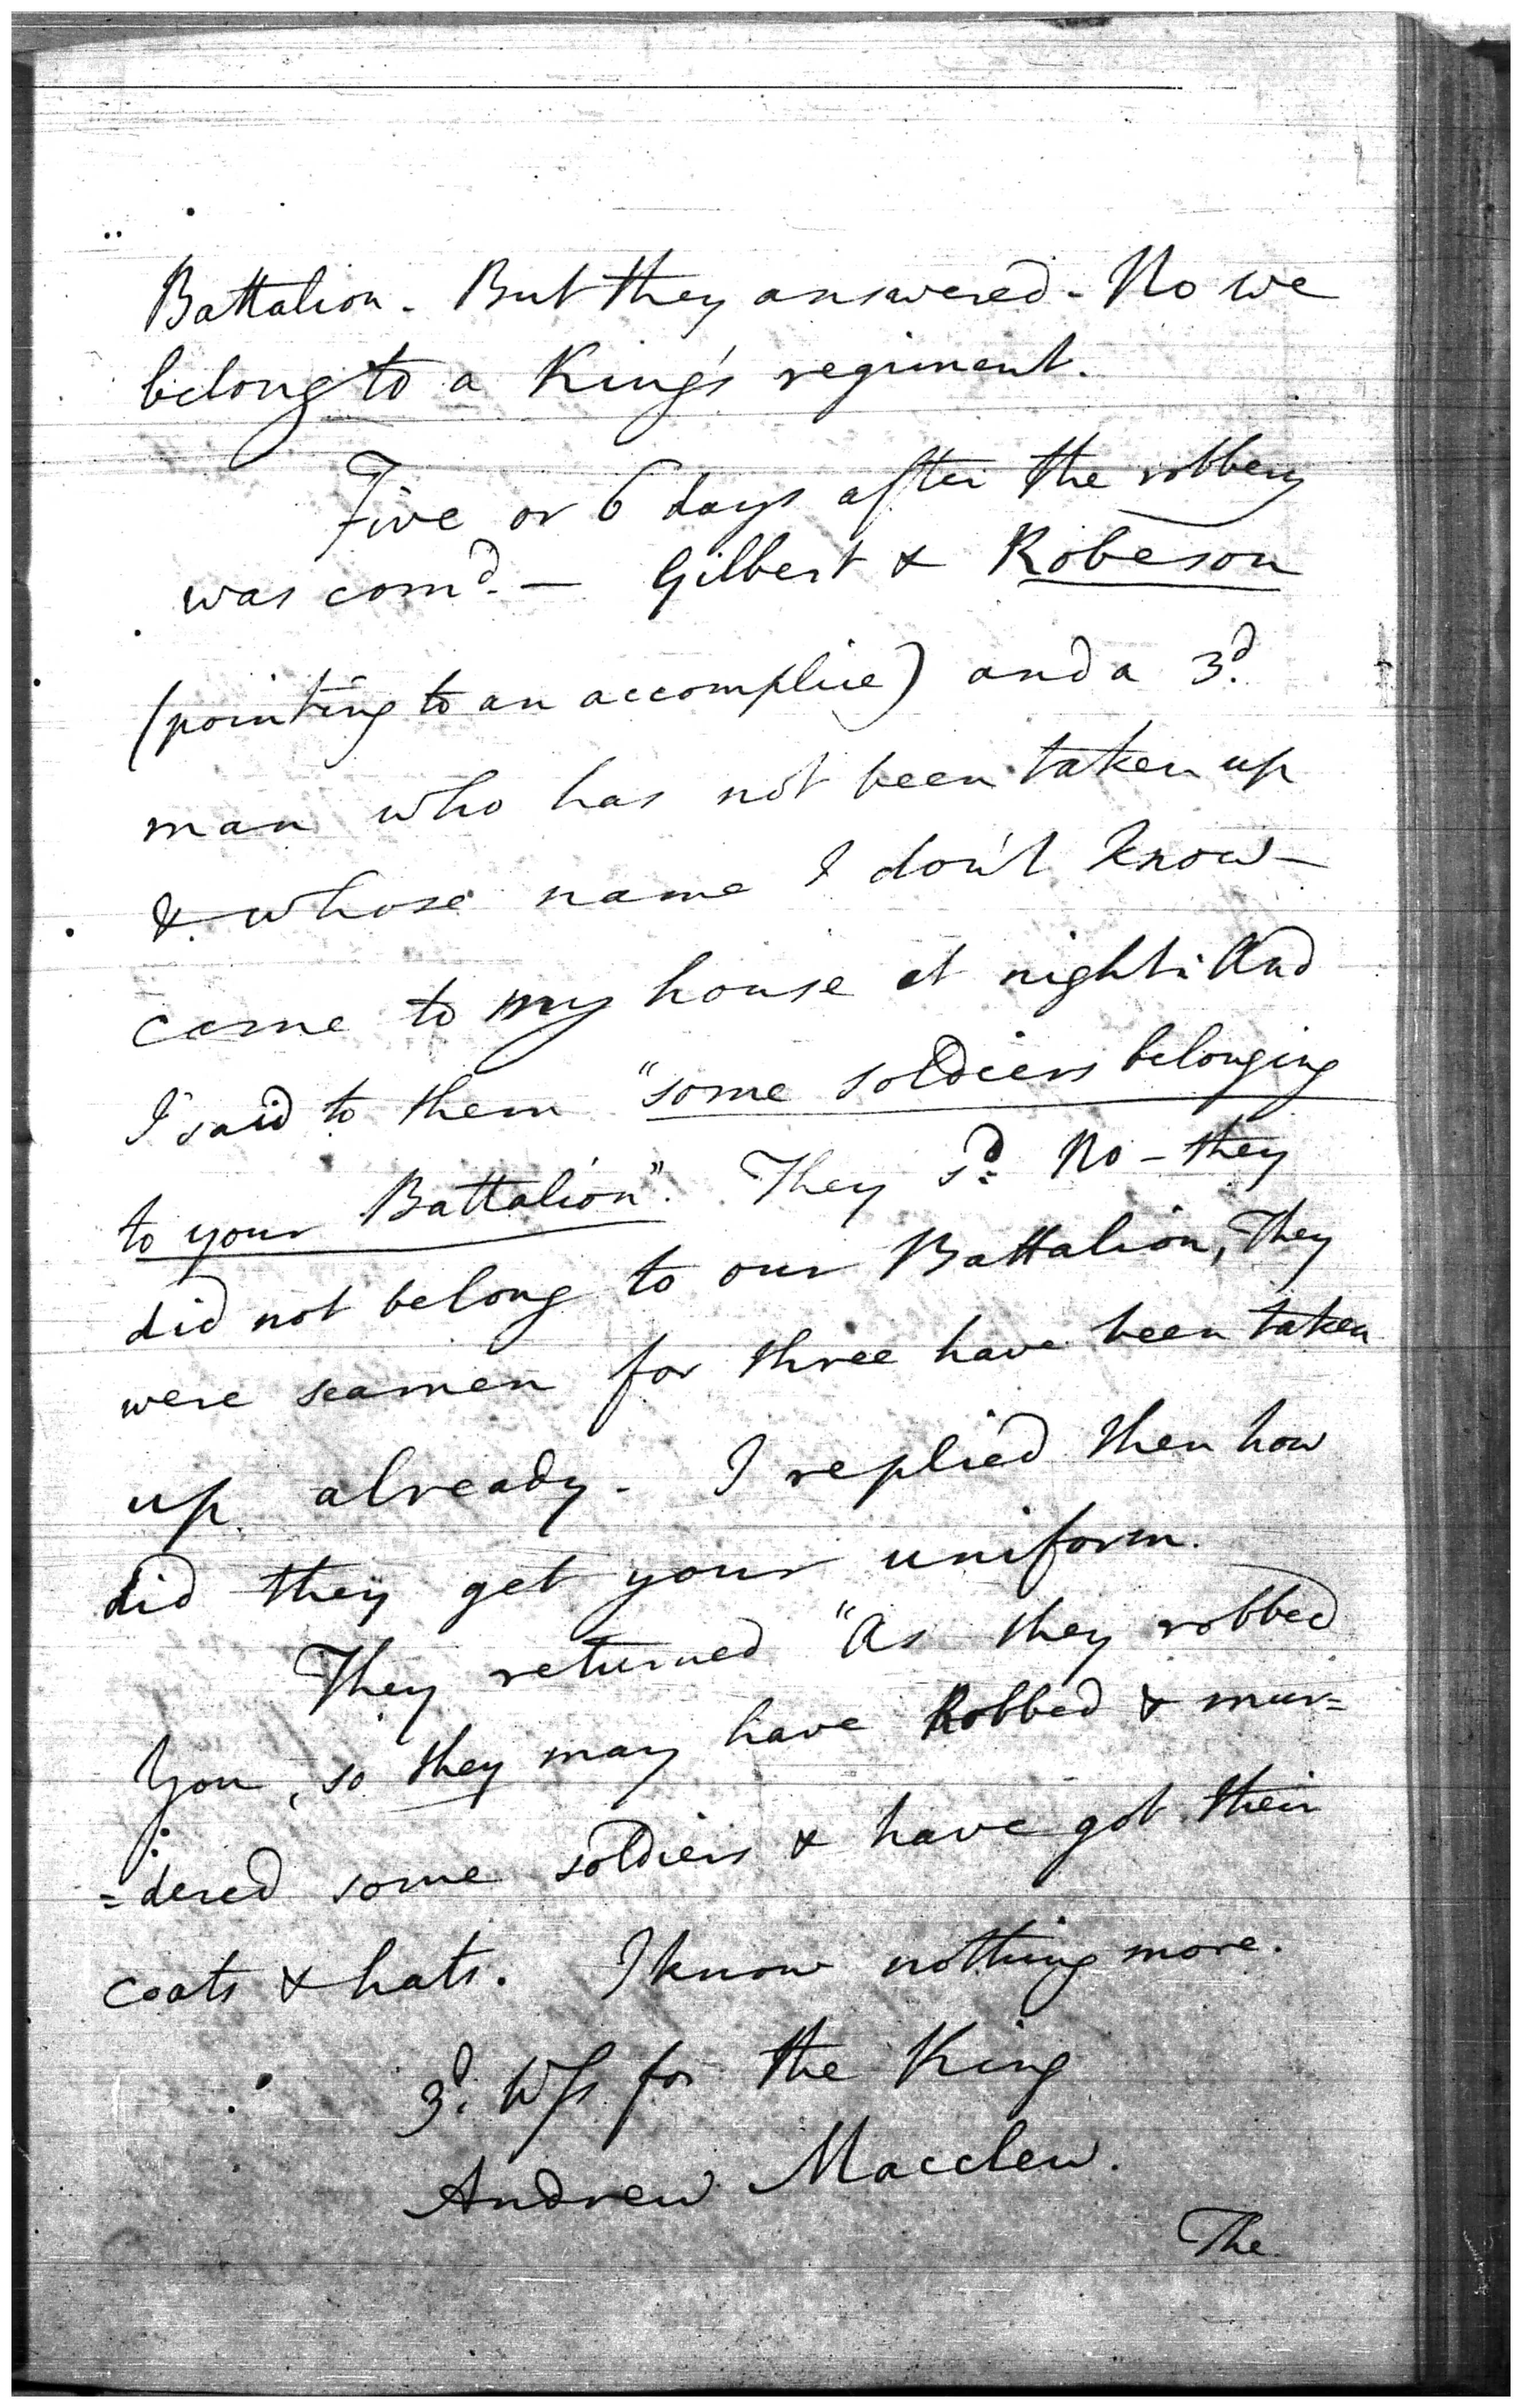 Battalion. But they answered - No we
belong to a King's regiment.
Five or 6 days after the robbery
was com^d. — Gilbert & Robeson
(pointing to an accomplice) and a 3^d.
man who has not been taken up
& whose name I don't know -
came to my house at night: And
I said to them "some soldiers belonging
to your Battalion". They s^d. No - they
did not belong to our Battalion, They
were seamen for three have been taken
up already. I replied then how
did they get your uniform.
They returned "As they robbed
You, so they may have Robbed & mur=
=dered some soldiers & have got their
coats & hats. I know nothing more.
3^d. Wss for the King
Andrew Macclew.
The